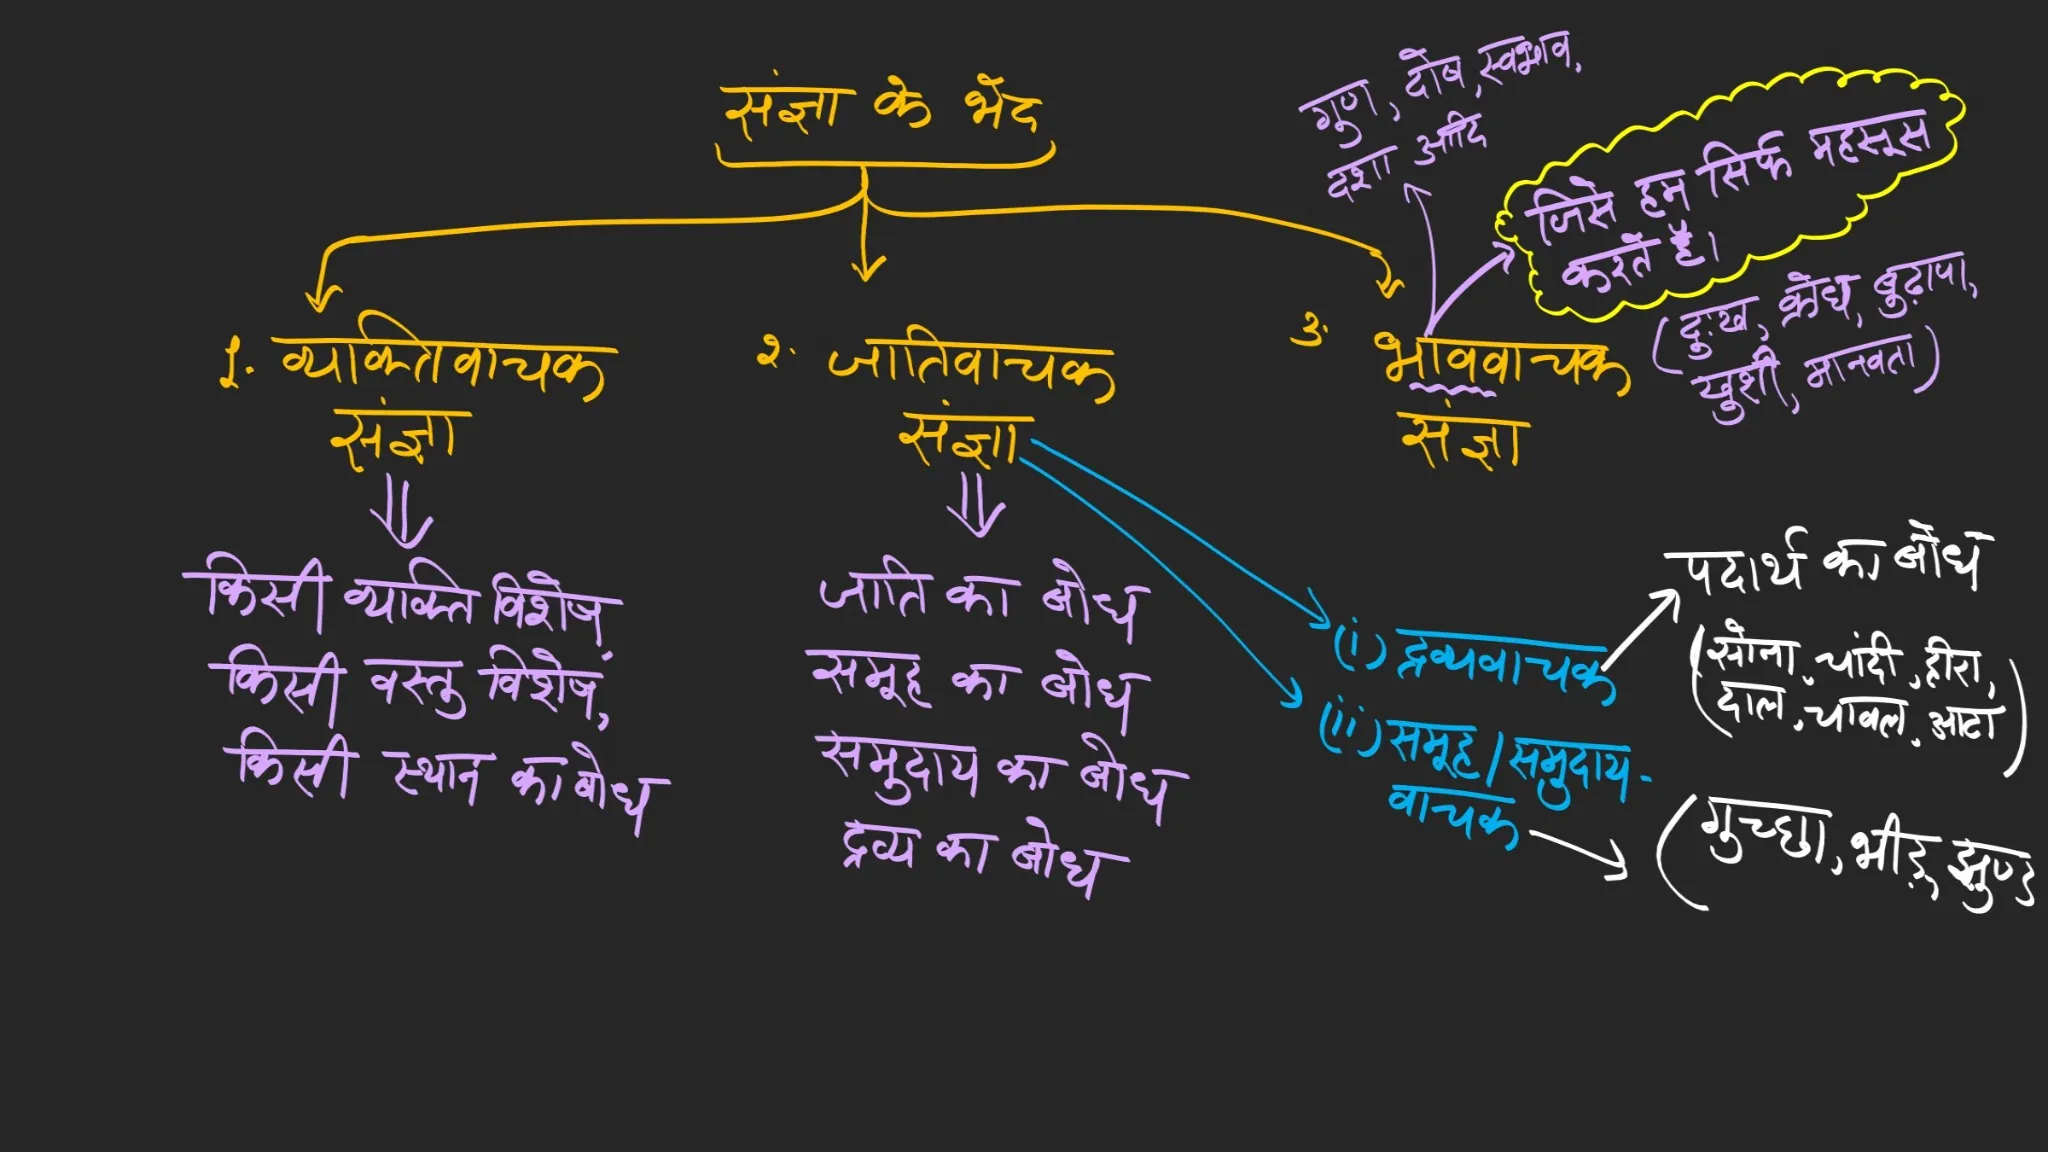 संज्ञा के भेद
१. व्यक्तिवाचक
संज्ञा
किसी व्यक्ति विशेष,
किसी वस्तु विशेष,
किसी स्थान का बोध
२. जातिवाचक
संज्ञा
जाति का बोध
समूह का बोध
समुदाय का बोध
द्रव्य का बोध
(i) द्रव्यवाचक
पदार्थ का बोध
(सोना, चांदी, हीरा,
दाल, चावल, आटा)
(ii) समूह/समुदाय-
वाचक
(गुच्छा, भीड़, झुण्ड
३. भाववाचक
संज्ञा
गुण, दोष, स्वभाव,
दशा आदि
जिसे हम सिर्फ महसूस
करते है।
(दुःख, क्रोध, बुढ़ापा,
खुशी, मानवता)